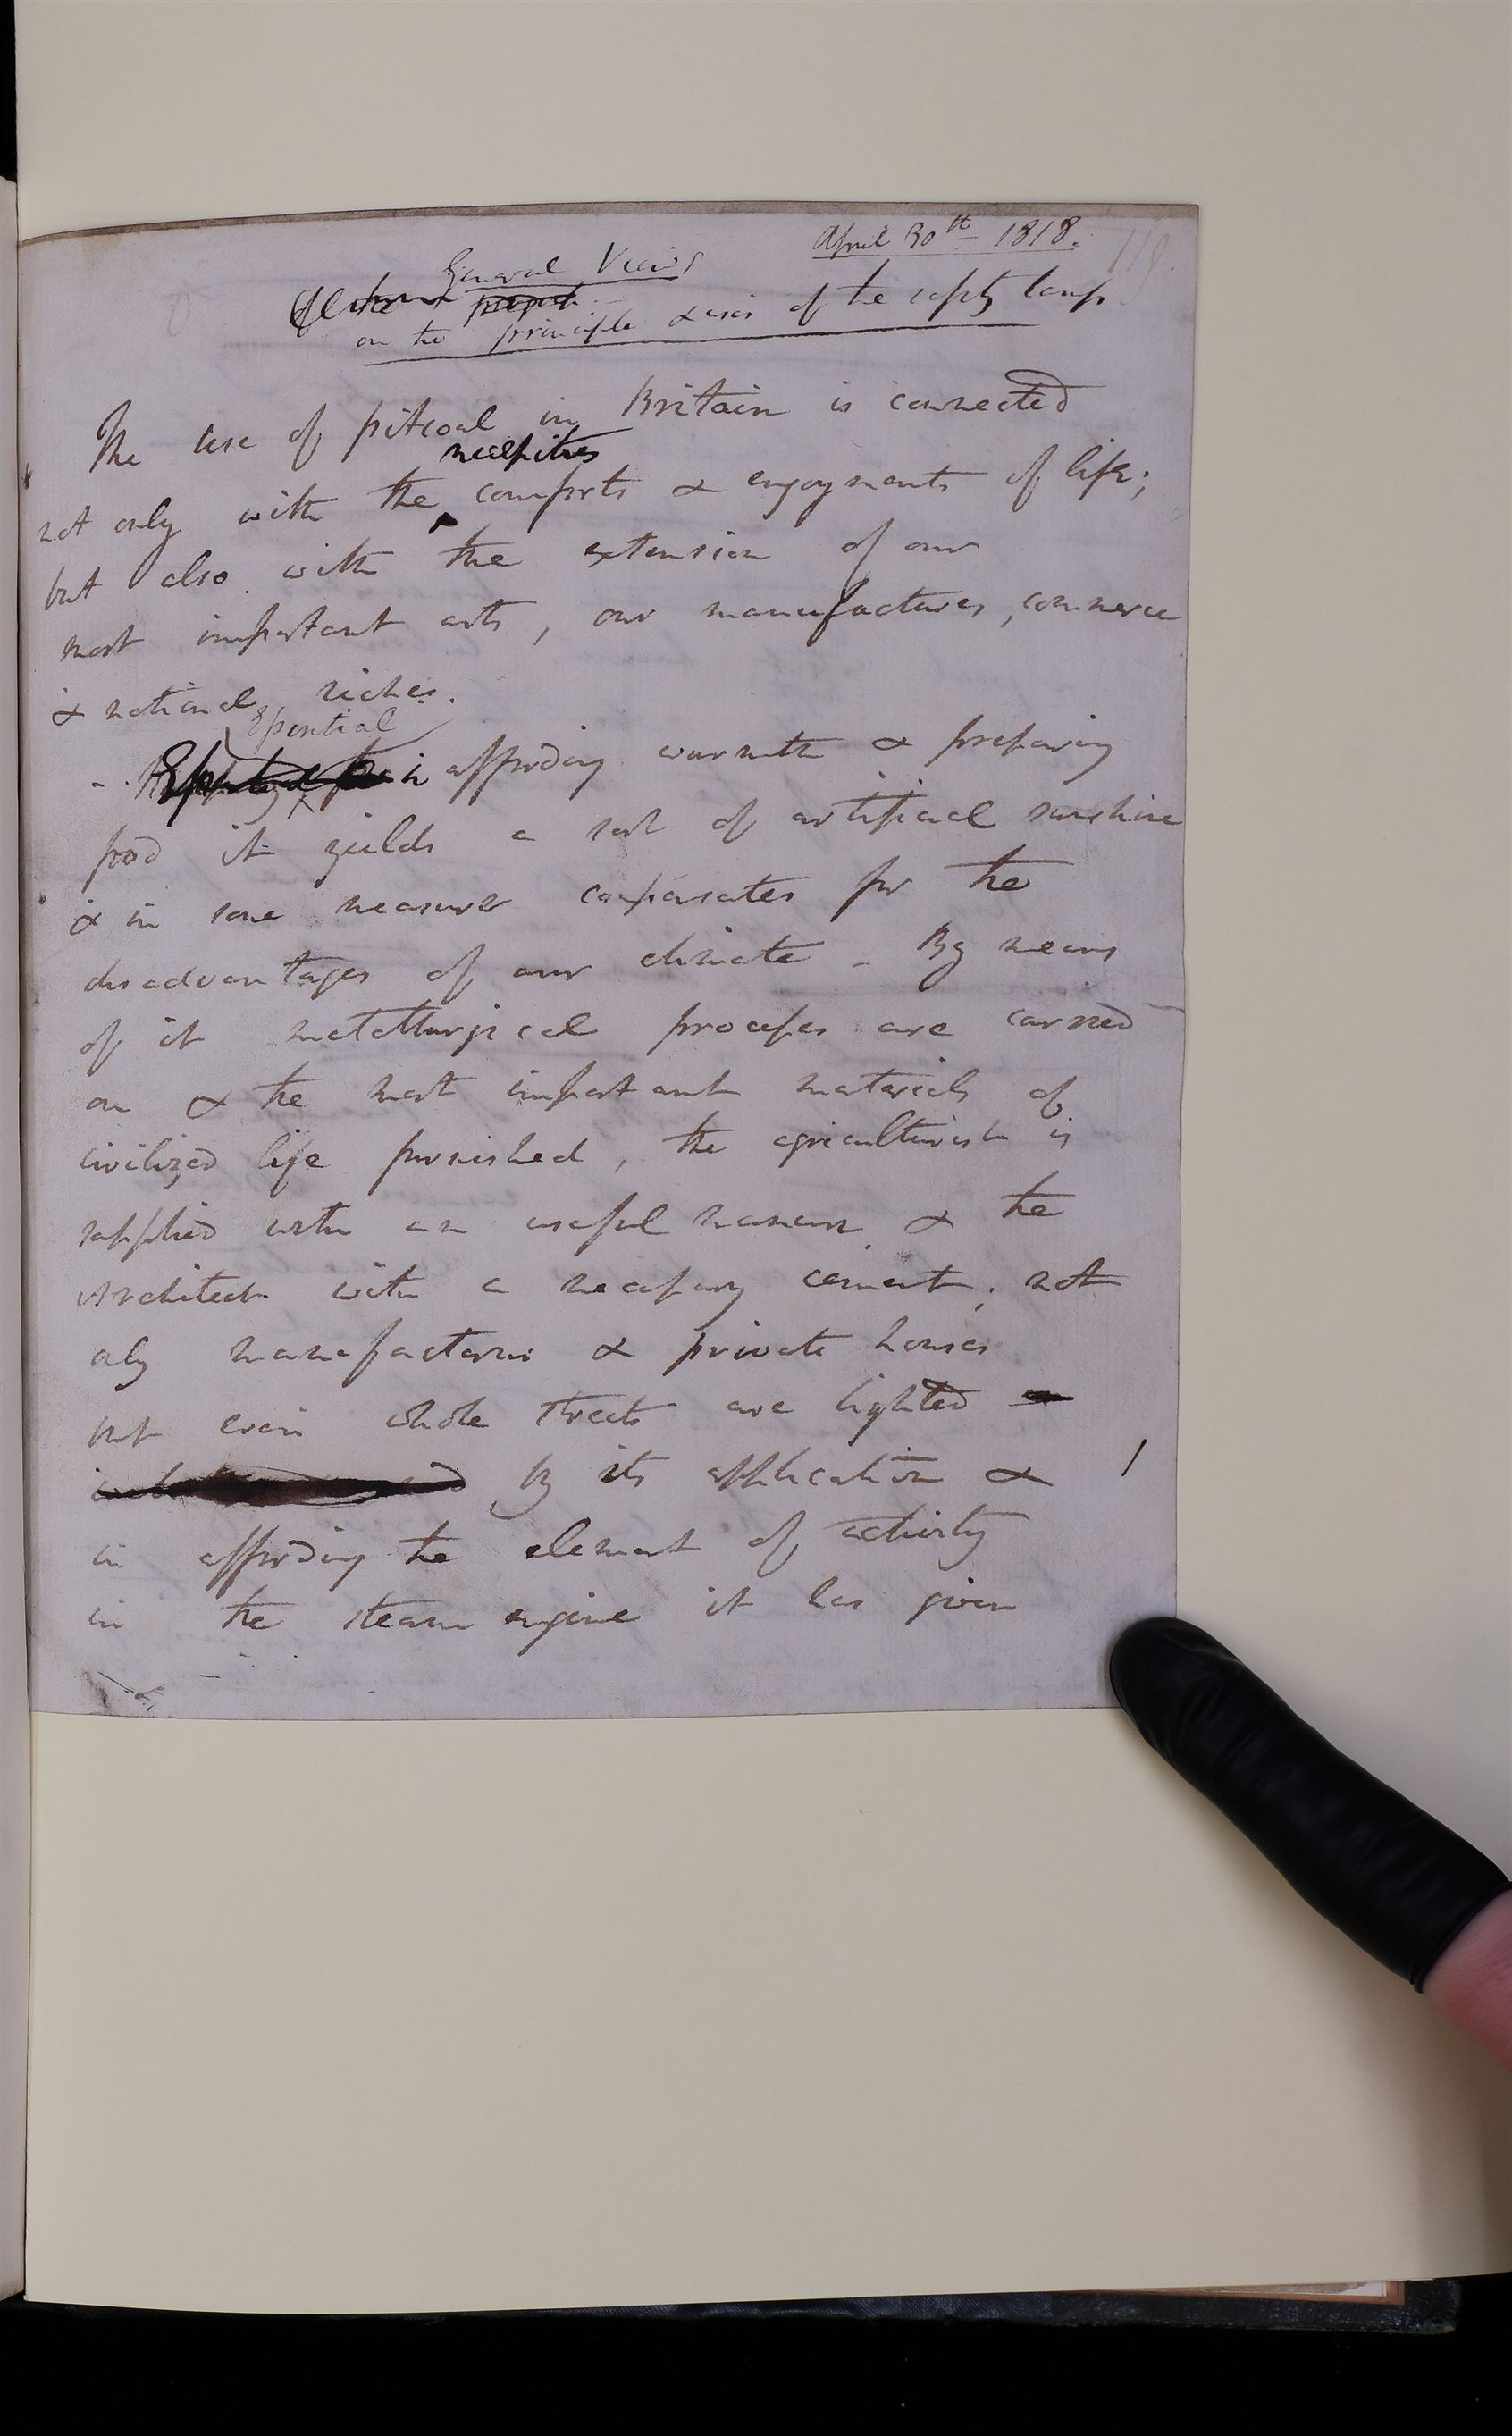 April 30th - 1818.
General Views
on the principle & uses of the safety lamp
The use of pitcoal in Britain is connected
necessities
not only with the comforts & enjoyments of life;
but also with the extension of our
most important arts, our manufactures, commerce
& national riches.
Essential
in affording warmth & preparing
food it yields a sort of artificial sunshine
& in some measure compensates for the
disadvantages of our climate - By means
of it metallurgical processes are carried
on & the most important materials of
civilized life furnished, the agriculturist is
supplied with an useful manure & the
architect with a necessary cement; not
only manufactories & private houses
but even whole streets are lighted
by its application &
in affording the element of activity
in the steam engine it has given